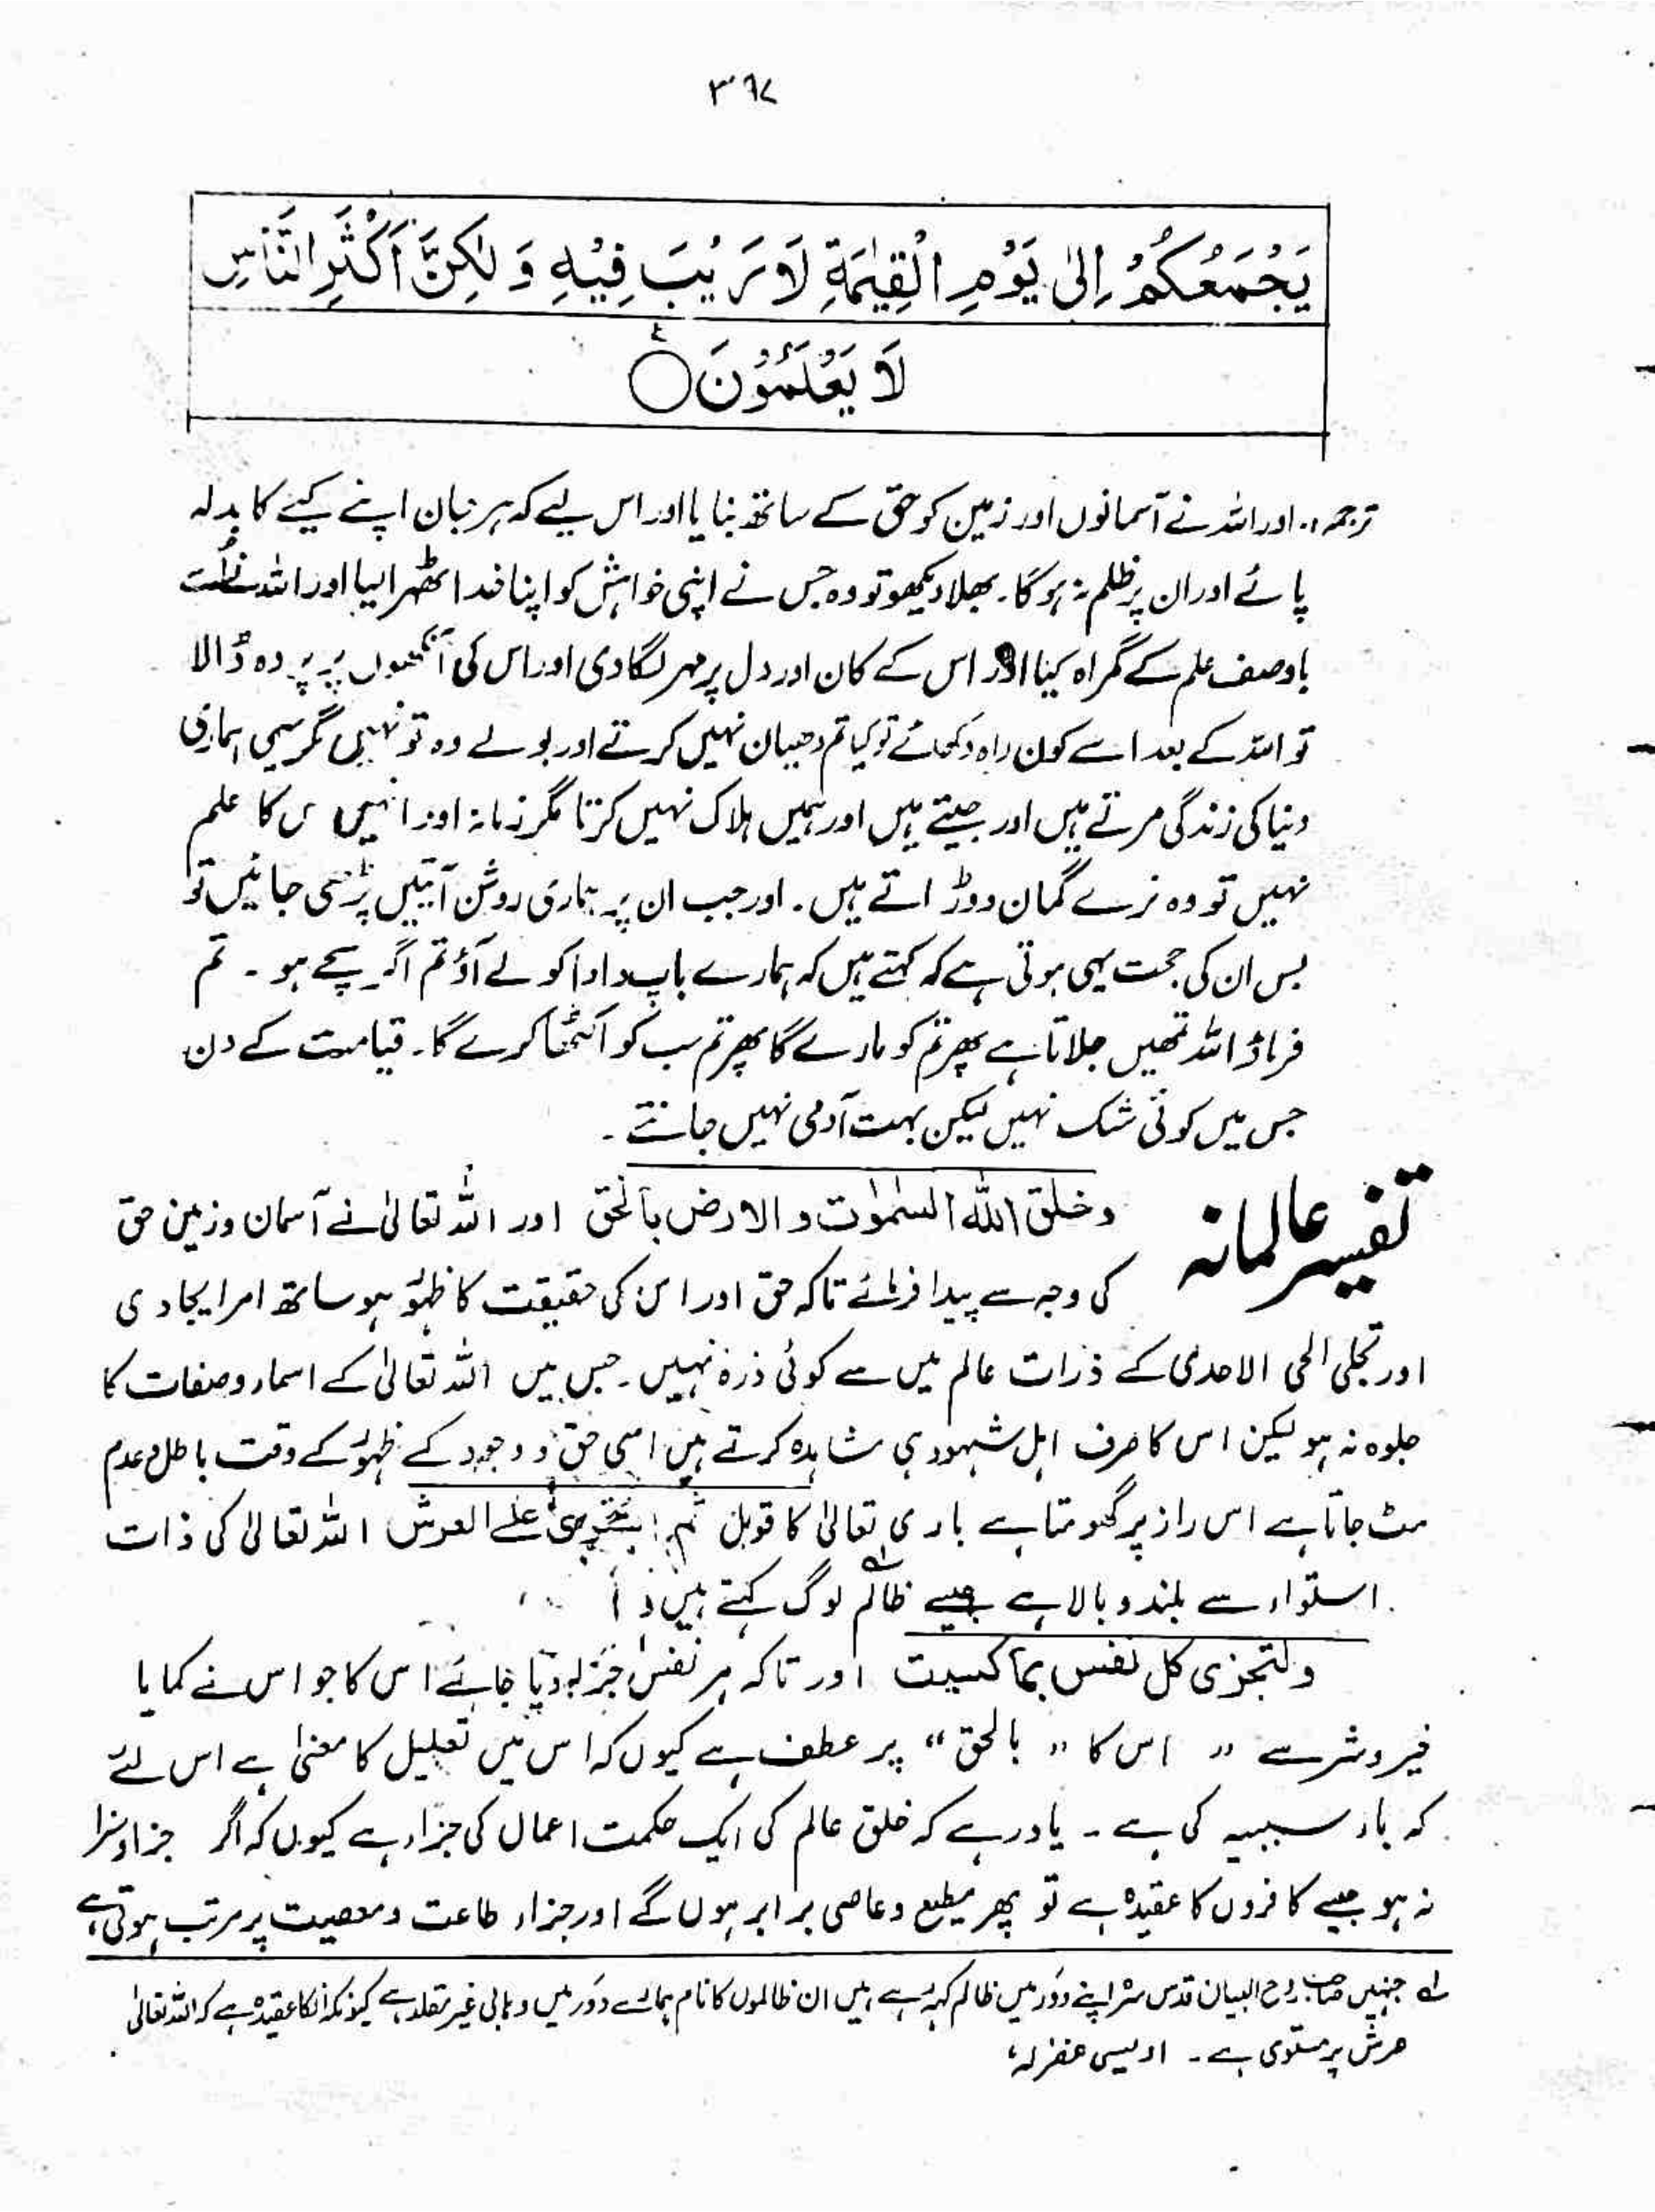 ۳۶۷
يَجْمَعُكُمْ اِلٰى يَوْمِ الْقِيٰمَةِ لَا رَيْبَ فِيْهِ وَ لٰكِنَّ اَكْثَرَ النَّاسِ
لَا يَعْلَمُوْنَ ○ ع
ترجمہ :۔ اور اللہ نے آسمانوں اور زمین کو حق کے ساتھ بنایا اور اس لیے کہ ہر جان اپنے کیے کا بدلہ
پائے اور ان پر ظلم نہ ہو گا۔ بھلا دیکھو تو وہ جس نے اپنی خواہش کو اپنا خدا ٹھہرا لیا اور اللہ نے اُسے
باوصف علم کے گمراہ کیا اور اس کے کان اور دل پر مہر لگا دی اور اس کی آنکھوں پر پردہ ڈالا
تو اللہ کے بعد اسے کون راہ دکھائے تو کیا تم دھیان نہیں کرتے اور بولے وہ تو نہیں مگر یہی ہماری
دنیا کی زندگی مرتے ہیں اور جیتے ہیں اور ہمیں ہلاک نہیں کرتا مگر زمانہ اور انہیں اس کا علم
نہیں تو وہ نرے گمان دوڑاتے ہیں۔ اور جب ان پر ہماری روشن آیتیں پڑھی جائیں تو
بس ان کی حجت یہی ہوتی ہے کہ کہتے ہیں کہ ہمارے باپ دادا کو لے آؤ تم اگر سچے ہو ۔ تم
فرماؤ اللہ تمھیں جلاتا ہے پھر تم کو مارے گا پھر تم سب کو اکٹھا کرے گا۔ قیامت کے دن
جس میں کوئی شک نہیں لیکن بہت آدمی نہیں جانتے ۔
تفسیر عالمانہ وخلق اللہ السمٰوٰت والارض بالحق اور اللہ تعالیٰ نے آسمان و زمین حق
کی وجہ سے پیدا فرمائے تاکہ حق اور اس کی حقیقت کا ظہور ہو ساتھ امر ایجادی
اور تجلی الحی الاحدی کے ذرات عالم میں سے کوئی ذرہ نہیں۔ جس میں اللہ تعالیٰ کے اسماء و صفات کا
جلوہ نہ ہو لیکن اس کا صرف اہل شہود ہی مشاہدہ کرتے ہیں اسی حق و وجود کے ظہور کے وقت باطل و عدم
مٹ جاتا ہے اس راز پر گھومتا ہے باری تعالیٰ کا قول ثم استویٰ علی العرش اللہ تعالیٰ کی ذات
استواء سے بلند و بالا ہے جیسے ظالم لوگ کہتے ہیں
ولتجزی کل نفس بما کسبت اور تاکہ ہر نفس جزاء دیا جائے اس کا جو اس نے کمایا
خیر و شر سے " اس کا " بالحق " پر عطف ہے کیوں کہ اس میں تعلیل کا معنیٰ ہے اس لئے
کہ باء سببیہ کی ہے ۔ یاد رہے کہ خلق عالم کی ایک حکمت اعمال کی جزاء ہے کیوں کہ اگر جزاو سزا
نہ ہو جیسے کافروں کا عقیدہ ہے تو پھر مطیع و عاصی برابر ہوں گے اور جزاء طاعت و معصیت پر مرتب ہوتی ہے
لہ جنہیں صاحب روح البیان قدس سرہ اپنے دور میں ظالم کہہ رہے ہیں ان ظالموں کا نام ہمارے دور میں وہابی غیر مقلد ہے کیونکہ انکا عقیدہ ہے کہ اللہ تعالیٰ
عرش پر مستوی ہے ۔ اویسی غفرلہ،